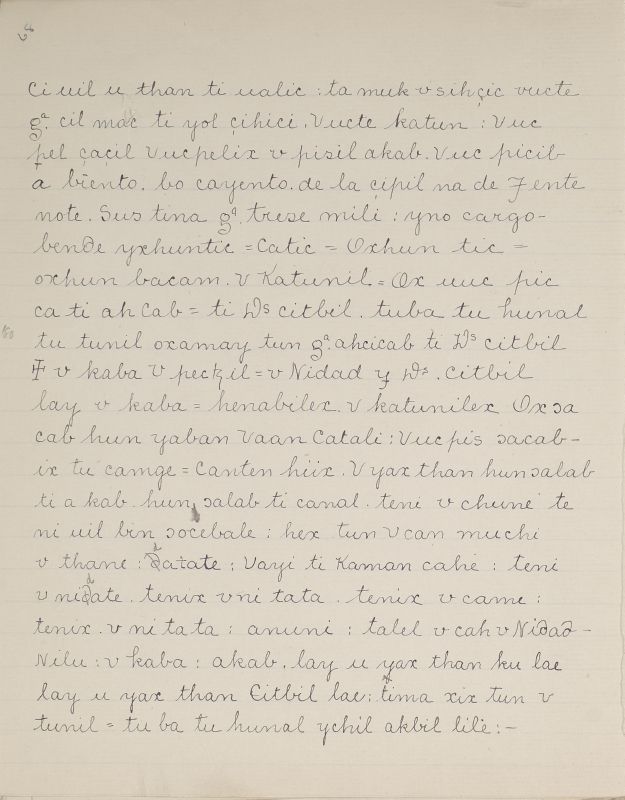 Ci uil u than ti ualic : ta muk v sihçic vucte
gª. cil mac ti yol çihici. Vucte katun : Vuc
pel çaçil Vucpelix v pisil akab. Vuc picib
a biento. bo cayento. de la çipil na de Fente
note. Sustina gª. trese mili : yno cargo-
bende yxhuntic = Catic = Oxhun tic =
oxhun bacam. v Katunil = Ox uuc pic
ca ti ah Cab = ti Ds citbil. tuba tu hunal
tu tunil oxamay tun gª. ahcicab ti Ds citbil
v kaba V pectzil = v Nidad y Ds. Citbil
lay v kaba = henabilex v katunilex Ox ɔa
cab hun yaban Vaan Catali : Vucpis ɔacab-
ix tu camge = Canten hiix. V yax than hun ɔalab
ti a kab. hun ɔalab ti canal. teni v chune te
ni uil bin ɔocebale : hex tun V can muchi
v thane : Vayi ti Kaman cahe : teni
tenix v ni tata. tenix v came :
tenix. v ni tata : anuni : talel v cah v Nidad -
Nilu : v kaba : akab. lay u yax than ku lae
lay u yax than Citbil lae : tima xix tun v
tunil = tu ba tu hunal ychil akbil lile : -